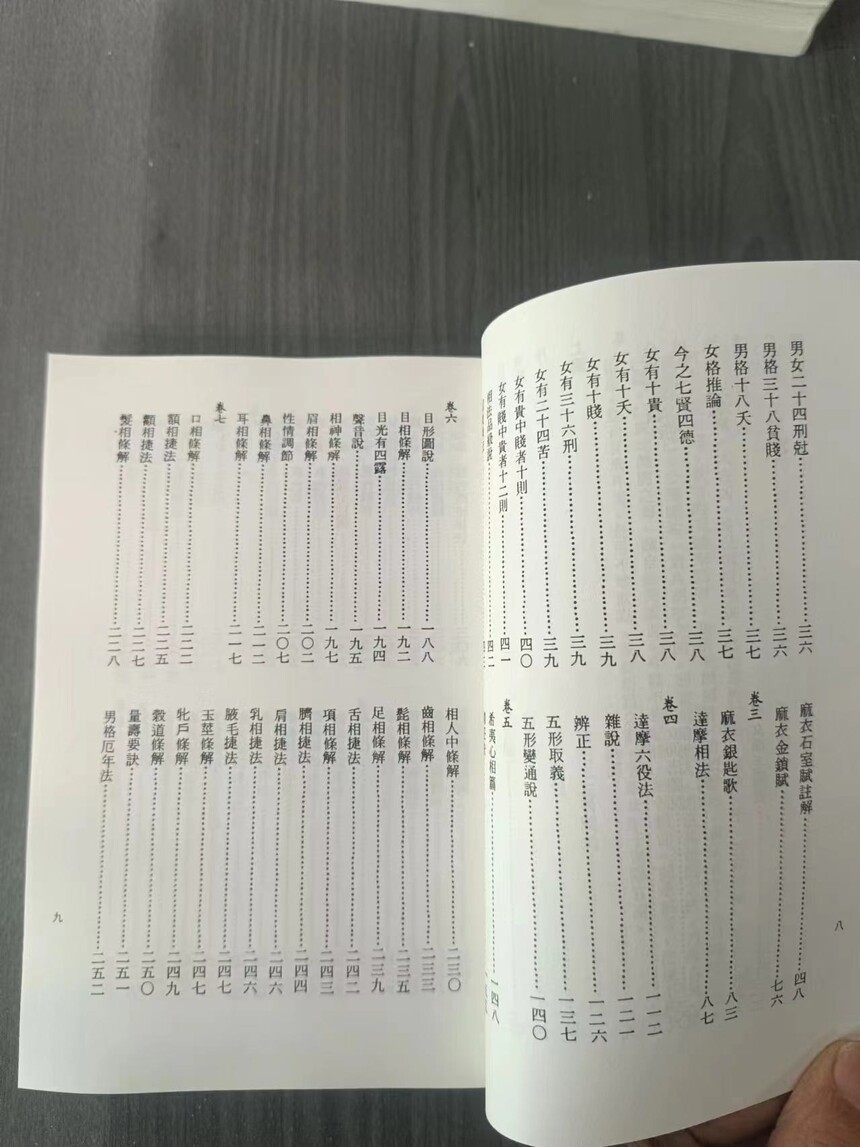 男女二十四刑尅……三六
男格三十八貧賤……三六
男格十八夭……三七
女格推論……三七
今之七賢四德……三八
女有十貴……三八
女有十夭……三八
女有十賤……三九
女有三十六刑……三九
女有二十四苦……三九
女有貴中賤者十則……四〇
女有賤中貴者十二則……四一
麻衣石室賦註解……四八
麻衣金鎖賦……七六
卷三
麻衣銀匙歌……八三
達摩相法……八七
卷四
達摩六役法……一一二
雜說……一二一
辨正……一二六
五形取義……一三七
五形變通說……一四〇
卷五
希夷心相篇……一四八
八
卷六
目形圖說……一八八
目相條解……一九二
目光有四露……一九四
聲音說……一九五
相神條解……一九七
眉相條解……二〇二
性情調節……二〇七
鼻相條解……二一二
耳相條解……二一七
卷七
口相條解……二二二
額相捷法……二二五
顴相捷法……二二七
髮相條解……二二八
相人中條解……二三〇
齒相條解……二三三
髭相條解……二三五
足相條解……二三九
舌相捷法……二四二
項相條解……二四三
臍相捷法……二四四
肩相捷法……二四六
乳相捷法……二四六
腋毛捷法……二四七
玉莖條解……二四七
牝戶條解……二四九
穀道條解……二五〇
量壽要訣……二五一
男格厄年法……二五二
九